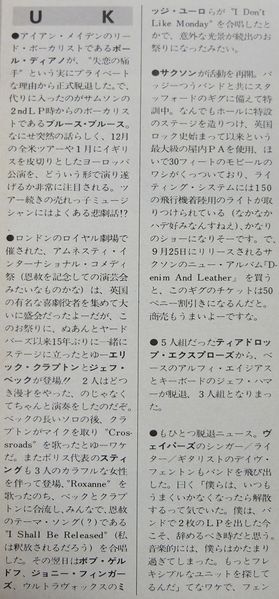 UK
●アイアン・メイデンのリー
ド・ボーカリストであるポー
ル・ディアノが、“失恋の痛
手”という実にプライベート
な理由から正式脱退した。で、
代りに入ったのがサムソンの
2nd L P時からのボーカリス
トであるブルース・ブルース。
なにせ突然の話らしく、12月
の全米ツアーや1月にイギリ
スを皮切りとしたヨーロッパ
公演を、どういう形で演り遂
げるか非常に注目される。ツ
アー続きの売れっ子ミュージ
シャンにはよくある悲劇話!?
●ロンドンのロイヤル劇場で
催された、アムネスティ・イ
ンターナショナル・コメディ
祭（恩赦を記念しての演芸会
みたいなものかな）は、英国
の有名な喜劇役者を集めて大
いに盛会だったよーだが、こ
のお祭りに、ぬあんとヤード
バーズ以来15年ぶりに一緒に
ステージに立ったとゆーエリ
ック・クラプトンとジェフ・
ベックが登場!! 2人はどつ
き漫才をやった、のじゃなく
てちゃんと演奏をしたのだぞ。
ベックの長いソロの後、クラ
プトンがマイクを取り“Cros-
sroads”を歌ったとゆーワケ
だ。またポリス代表のスティ
ングも3人のカラフルな女性
を伴って登場、“Roxanne”を
歌ったのち、ベックとクラプト
ンに合流し、みんなで、恩赦
のテーマ・ソング(?)である
“I Shall Be Released”（私
は釈放されるだろう）を合唱
した。その翌日はボブ・ゲル
ドフ、ジョニー・フィンガー
ズ、ウルトラヴォックスのミ
ッジ・ユーロらが“I Don't
Like Monday”を合唱したと
かで、意外な光景が続出のお
祭りになったみたい。
●サクソンが活動を再開。バ
ッジーつうバンドと共にスタ
ッフォードのギグに備えて特
訓中。なんでもホールに特設
のステージを造りつけ、英国
ロック史始まって以来という
最大級の屋内PAを使用、ほ
いで30フィートのモビールの
ワシがくっついており、ライ
ティング・システムには150
の飛行機着陸用のライトが取
りつけられている（なかなか
ハデ好みなんすねえ）、かなり
のショーになりそーです。で、
9月25日にリリースされるサ
クソンのニュー・アルバム“D-
enim And Leather”を買う
と、このギグのチケットは50
ペニー割引きになるんだと。
商売もうまいよーですな。
●5人組だったティアドロッ
プ・エクスプローズから、ベ
ースのアルフィ・エイジアス
とキーボードのジェフ・ハマ
ーが脱退、3人組となりまっ
た。
●もひとつ脱退ニュース。ヴ
ェイパーズのシンガー／ライ
ター／ギタリストのデイヴ・
フェントンもバンドを飛び出
した。曰く「僕らは、いつも
うまくいかなくなったら解散
するって気でいた。僕は、バ
ンドで2枚のL Pを出した今
こそ、辞めるべき時だと思う。
音楽的には、僕らはかたまり
過ぎてしまった。もっとフレ
キシブルなユニットを探して
るんだ」てなワケで、フェン